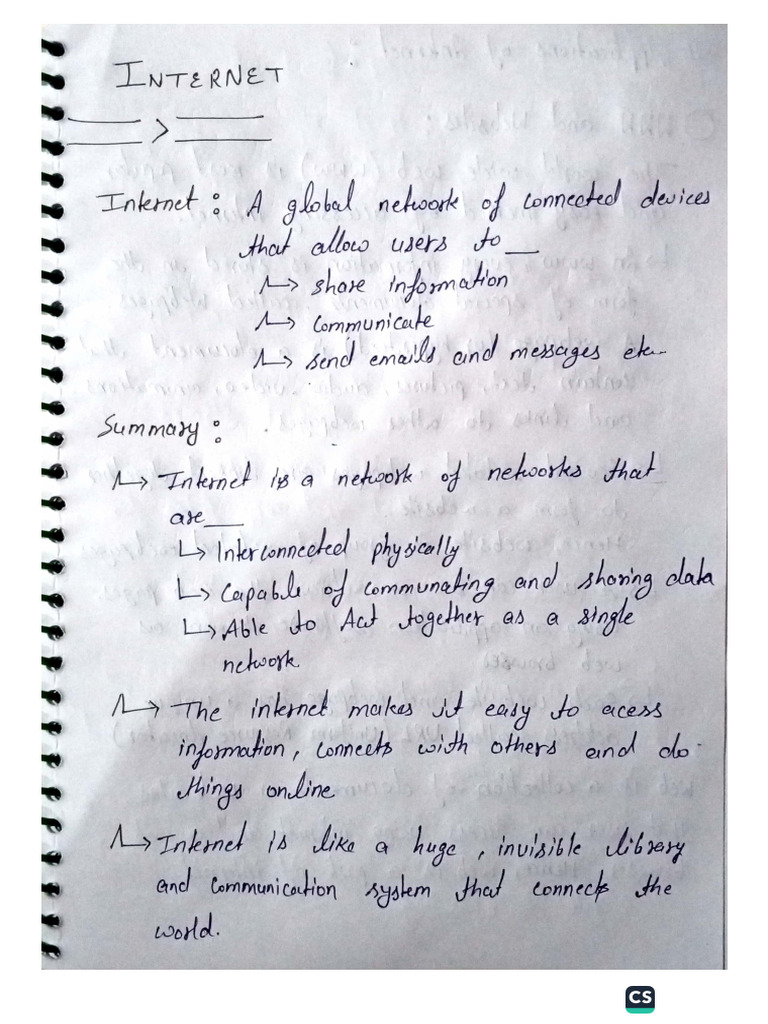 INTERNET
Internet : A global network of connected devices
that allow users to__
↳ share information
↳ Communicate
↳ send emails and messages etc..
Summary :
↳ Internet is a network of networks that
are__
↳ Interconnected physically
↳ Capable of communating and sharing data
↳ Able to Act together as a single
network
↳ The internet makes it easy to acess
information, connects with others and do
things online
↳ Internet is like a huge, invisible library
and communication system that connects the
world.
CS